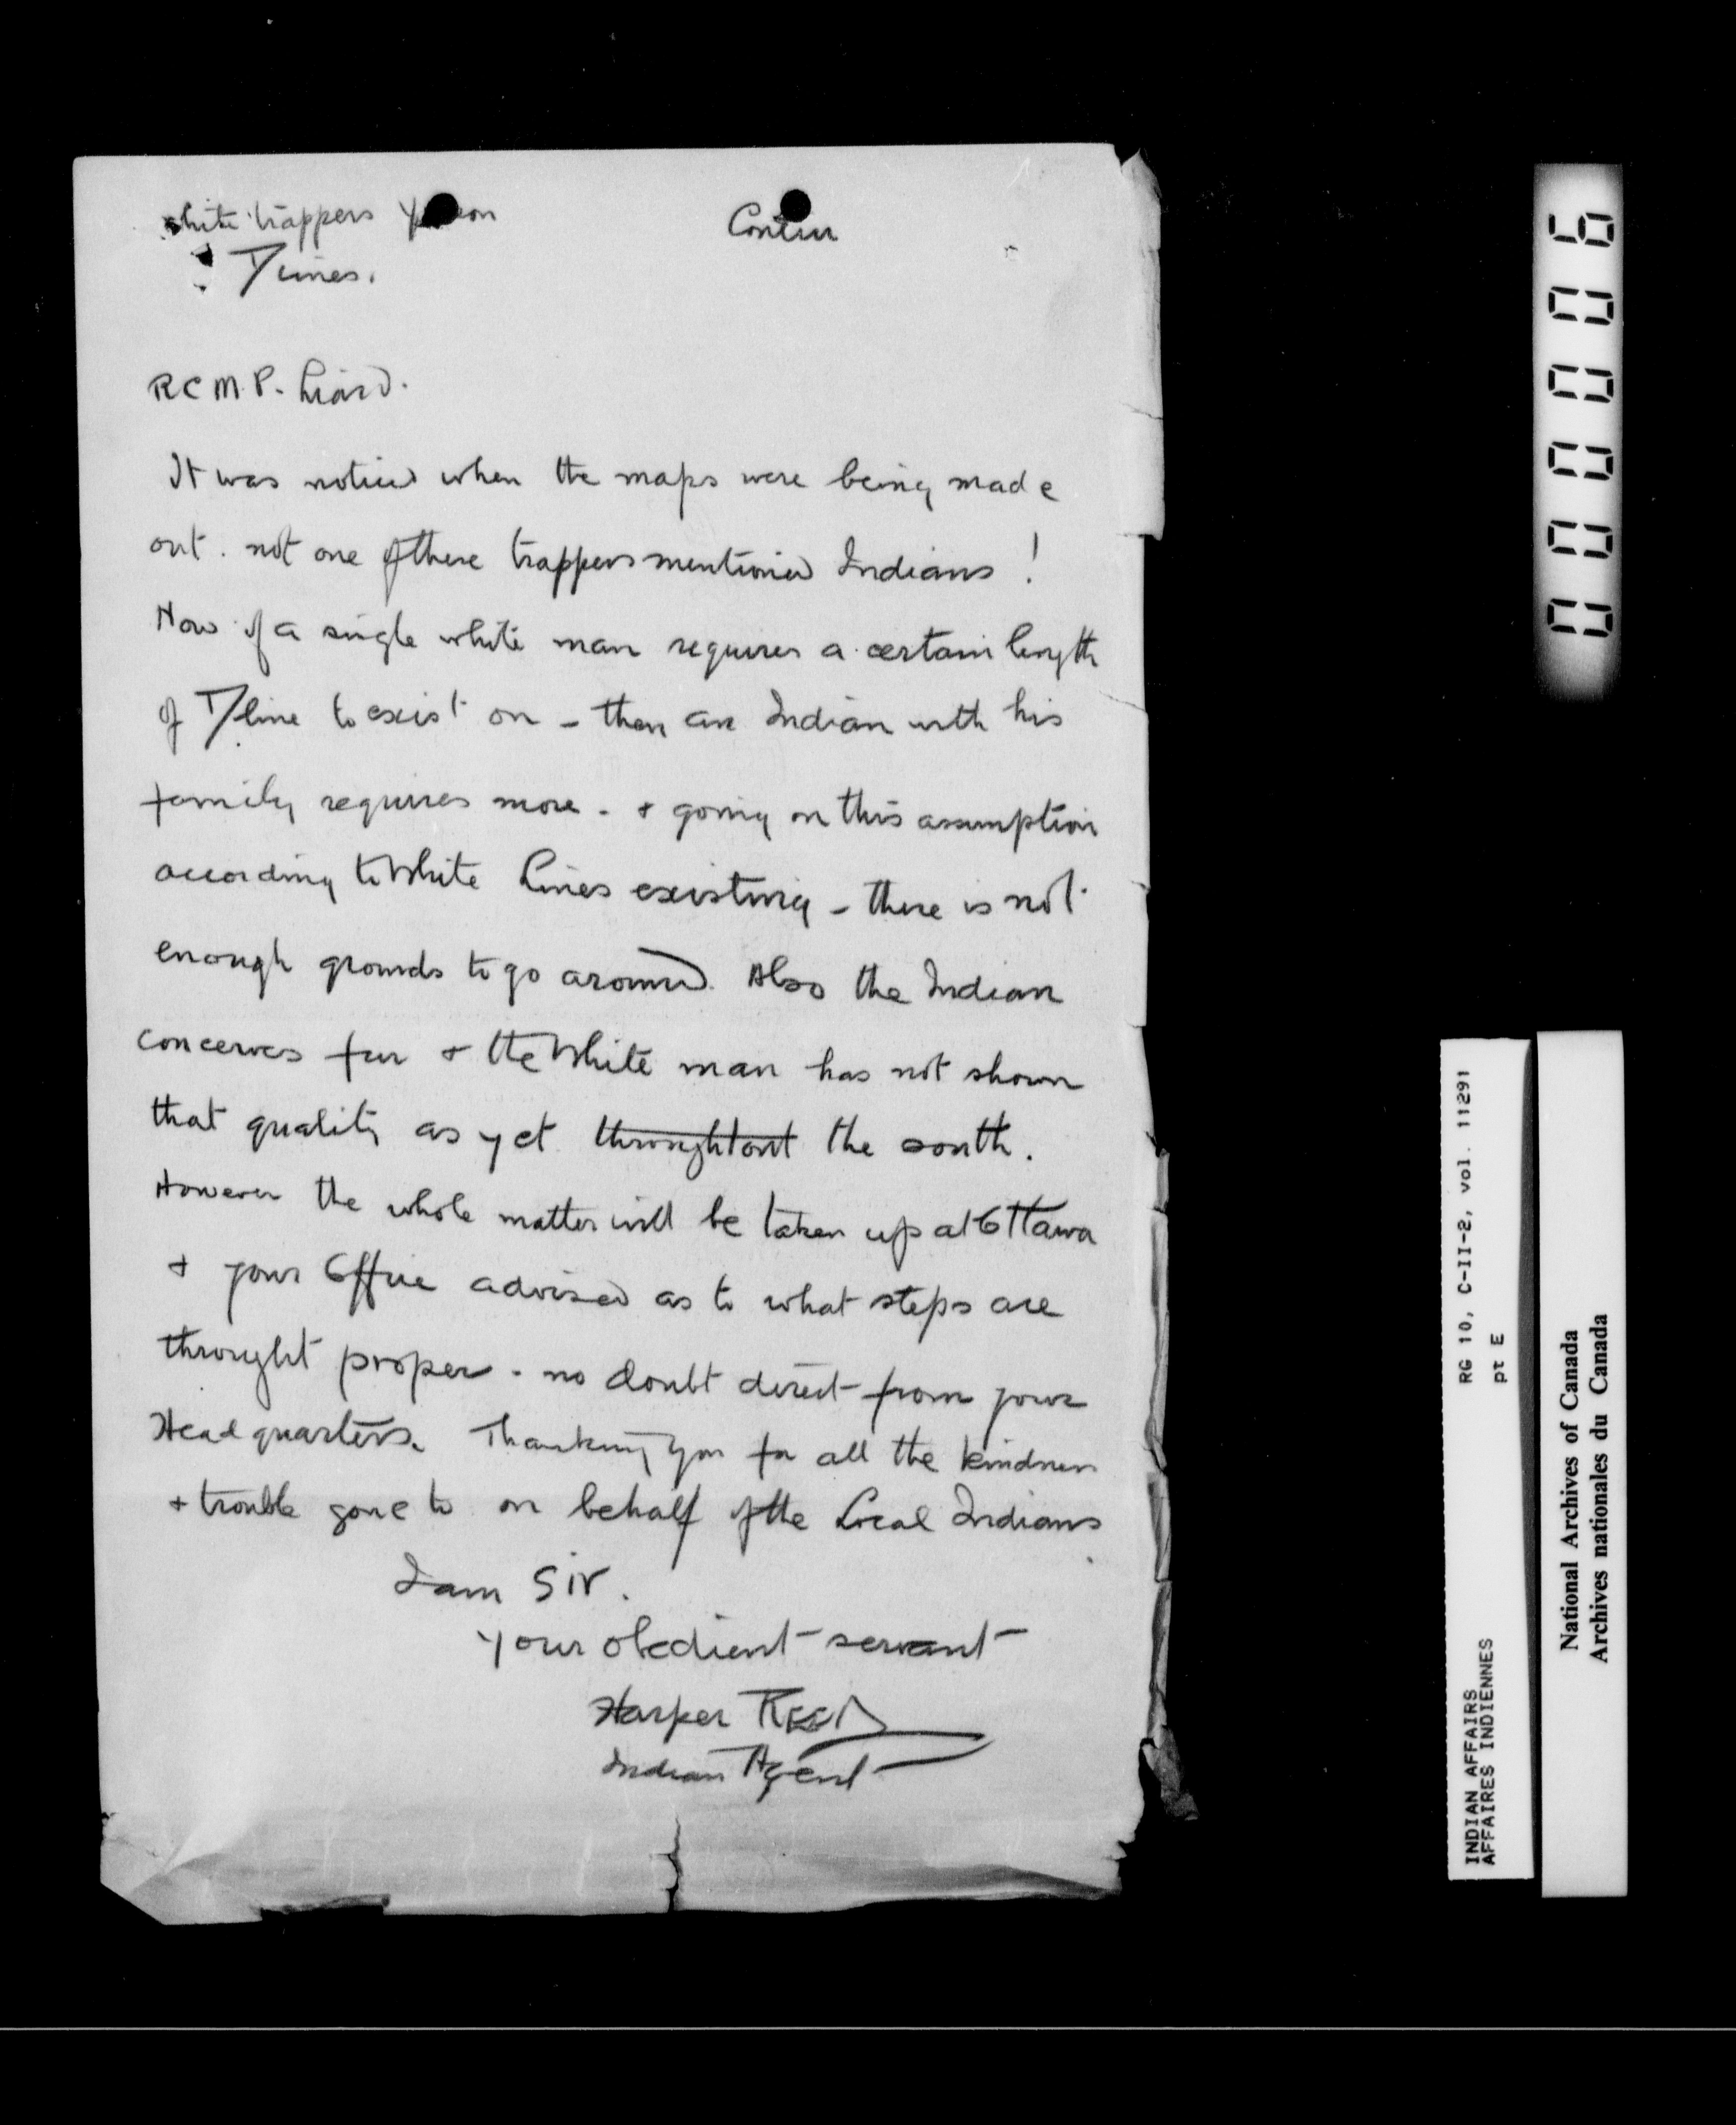 white trappers Yukon
Contin
T/Lines.
R C M. P. Liard.
It was noticed when the maps were being made
out. not one of these trappers mentioned Indians !
Now if a single white man requires a certain length
of T/line to exist on - then an Indian with his
family requires more. + going on this assumption
according to White Lines existing - there is not
enough grounds to go around. Also the Indian
concerves fur + the White man has not shown
that quality as yet throughtout the south.
However the whole matter will be taken up at Ottawa
+ your Office advised as to what steps are
throught proper. no doubt direct from your
Headquarters. Thanking you for all the kindness
+ trouble gone to on behalf of the Local Indians.
I am Sir.
Your obedient servant
Harper REED
Indian Agent
000006
RG 10, C-II-2, vol. 11291
pt E
INDIAN AFFAIRS
AFFAIRES INDIENNES
National Archives of Canada
Archives nationales du Canada